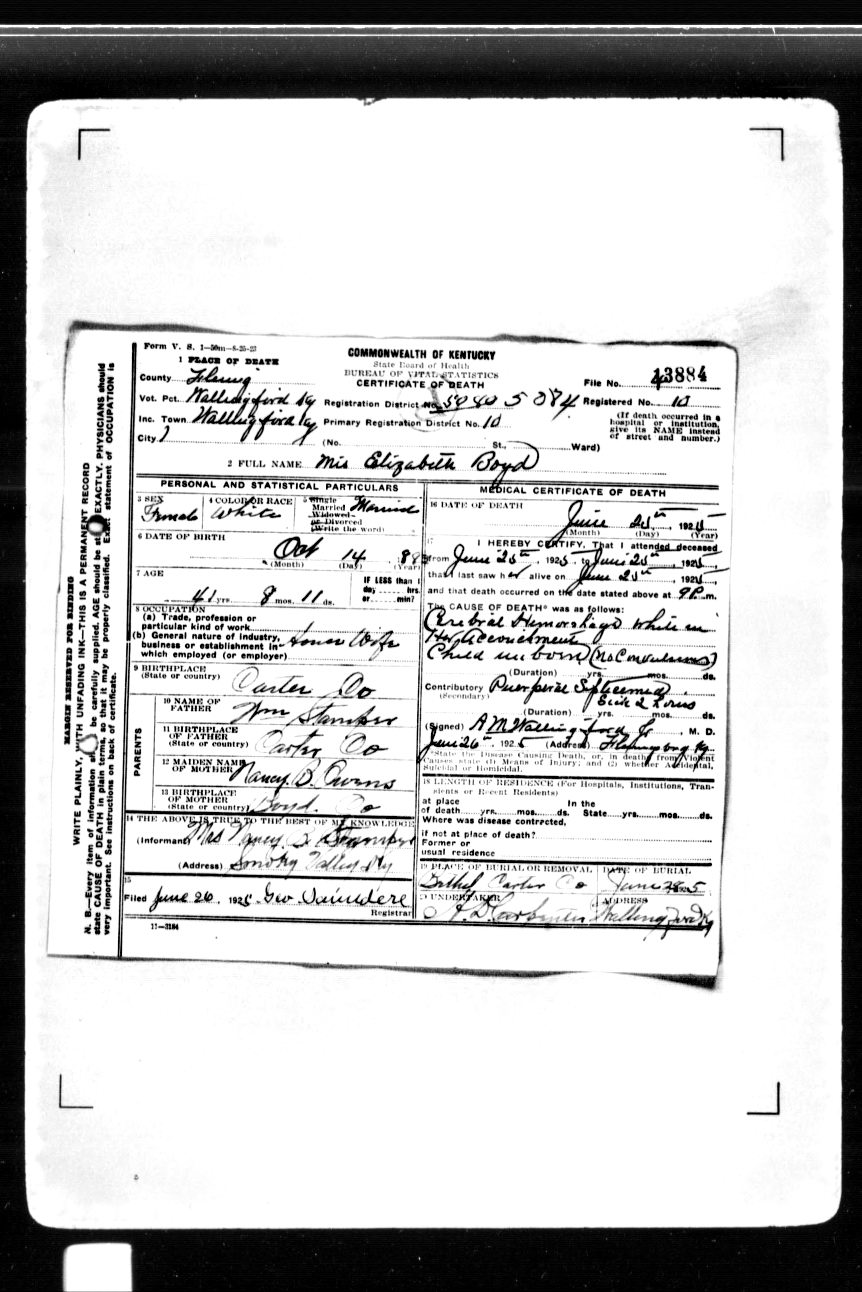 Form V. S. 1—50m—8-25-23
1 PLACE OF DEATH
County Fleming
Vot. Pct. Wallingford Ky
Inc. Town Wallingford Ky
City
COMMONWEALTH OF KENTUCKY
State Board of Health
BUREAU OF VITAL STATISTICS
CERTIFICATE OF DEATH
File No. 13884
Registration District No. 5084 Registered No. 10
Primary Registration District No. 10
(If death occurred in a
hospital or institution,
give its NAME instead
of street and number.)
(No. St., Ward)
2 FULL NAME Mis Elizabeth Boyd
PERSONAL AND STATISTICAL PARTICULARS
3 SEX
Female
4 COLOR OR RACE
White
5 Single
Married
Widowed
or Divorced
(Write the word)
Married
6 DATE OF BIRTH
Oct 14
(Month) (Day) (Year)
7 AGE
41 yrs. 8 mos. 11 ds.
IF LESS than 1
day hrs.
or min?
8 OCCUPATION
(a) Trade, profession or
particular kind of work
(b) General nature of industry,
business or establishment in
which employed (or employer)
House Wife
9 BIRTHPLACE
(State or country)
Carter Co
PARENTS
10 NAME OF
FATHER
Wm Stamper
11 BIRTHPLACE
OF FATHER
(State or country)
Carter Co
12 MAIDEN NAME
OF MOTHER
Nancy. B. Owens
13 BIRTHPLACE
OF MOTHER
(State or country)
Boyd. Co
14 THE ABOVE IS TRUE TO THE BEST OF MY KNOWLEDGE
(Informant) Mrs Nancy B. Stamper
(Address) Smoky Valley Ky
15
Filed June 26, 1925 Geo Saundere
Registrar
11—3184
MEDICAL CERTIFICATE OF DEATH
16 DATE OF DEATH
June 25th, 1925
(Month) (Day) (Year)
17 I HEREBY CERTIFY, That I attended deceased
from June 25th, 1925, to June 25th, 1925,
that I last saw her alive on June 25th, 1925,
and that death occurred on the date stated above at 9P.m.
The CAUSE OF DEATH* was as follows:
Cerebral Hemorrhage while in
Her Accouchment
Child unborn (No Convulsions)
(Duration) yrs. mos. ds.
Contributory Puerperal Septicemia
(Secondary)
(Duration) yrs. mos. ds.
(Signed) A M Wallingford Jr, M. D.
June 26th, 1925 (Address) Flemingsburg Ky
*State the Disease Causing Death, or, in deaths from Violent
Causes state (1) Means of Injury; and (2) whether Accidental,
Suicidal or Homicidal.
18 LENGTH OF RESIDENCE (For Hospitals, Institutions, Tran-
sients or Recent Residents)
at place In the
of death yrs. mos. ds. State yrs. mos. ds.
Where was disease contracted,
if not at place of death?
Former or
usual residence
19 PLACE OF BURIAL OR REMOVAL
Bethel Carter Co
DATE OF BURIAL
June 1925
20 UNDERTAKER
A. D. Carpenter
ADDRESS
Wallingford Ky
MARGIN RESERVED FOR BINDING
WRITE PLAINLY, WITH UNFADING INK—THIS IS A PERMANENT RECORD
N. B.—Every item of information should be carefully supplied. AGE should be stated EXACTLY. PHYSICIANS should
state CAUSE OF DEATH in plain terms, so that it may be properly classified. Exact statement of OCCUPATION is
very important. See instructions on back of certificate.